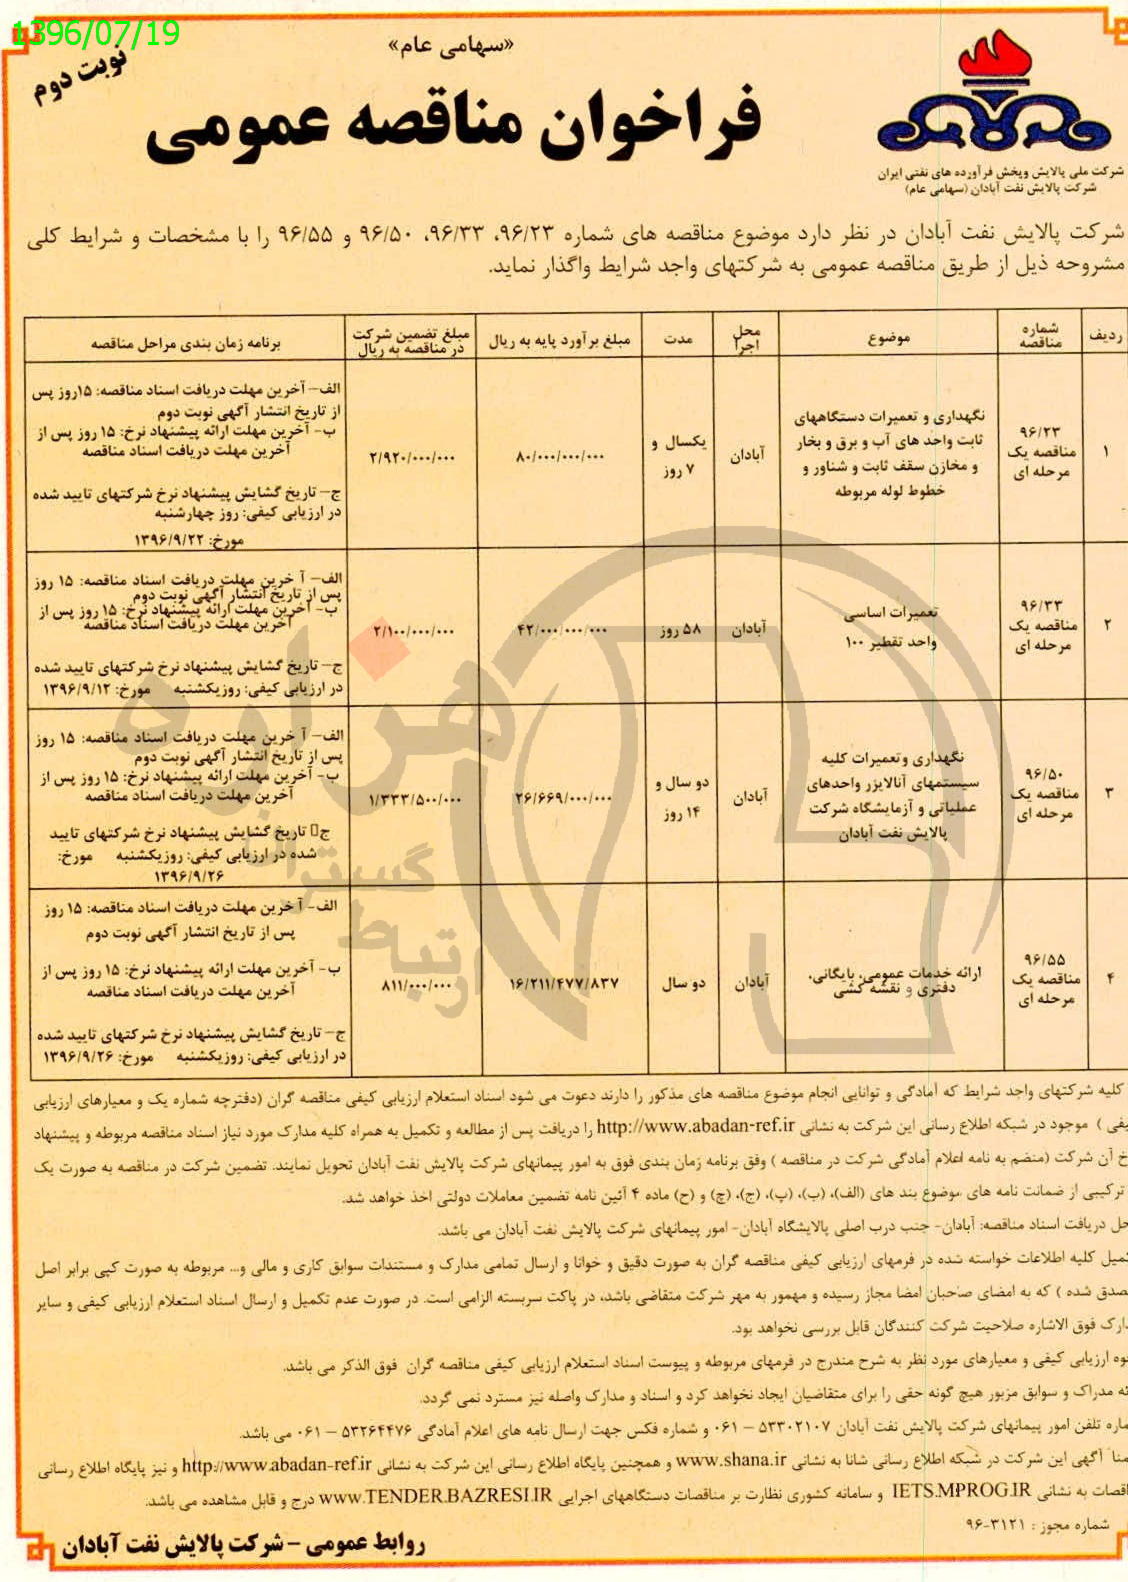 1396/07/19
نوبت دوم
«سهامی عام»
فراخوان مناقصه عمومی
شرکت ملی پالایش وپخش فرآورده های نفتی ایران
شرکت پالایش نفت آبادان (سهامی عام)
شرکت پالایش نفت آبادان در نظر دارد موضوع مناقصه های شماره ۹۶/۲۳، ۹۶/۳۳، ۹۶/۵۰ و ۹۶/۵۵ را با مشخصات و شرایط کلی
مشروحه ذیل از طریق مناقصه عمومی به شرکتهای واجد شرایط واگذار نماید.
ردیف
شماره
مناقصه
موضوع
محل
اجرا
مدت
مبلغ برآورد پایه به ریال
مبلغ تضمین شرکت
در مناقصه به ریال
برنامه زمان بندی مراحل مناقصه
۱
۹۶/۲۳
مناقصه یک
مرحله ای
نگهداری و تعمیرات دستگاههای
ثابت واحد های آب و برق و بخار
و مخازن سقف ثابت و شناور و
خطوط لوله مربوطه
آبادان
یکسال و
۷ روز
۸۰/۰۰۰/۰۰۰/۰۰۰
۲/۹۲۰/۰۰۰/۰۰۰
الف– آخرین مهلت دریافت اسناد مناقصه: ۱۵روز پس
از تاریخ انتشار آگهی نوبت دوم
ب– آخرین مهلت ارائه پیشنهاد نرخ: ۱۵ روز پس از
آخرین مهلت دریافت اسناد مناقصه
ج– تاریخ گشایش پیشنهاد نرخ شرکتهای تایید شده
در ارزیابی کیفی: روز چهارشنبه
مورخ: ۱۳۹۶/۹/۲۲
۲
۹۶/۳۳
مناقصه یک
مرحله ای
تعمیرات اساسی
واحد تقطیر ۱۰۰
آبادان
۵۸ روز
۴۲/۰۰۰/۰۰۰/۰۰۰
۲/۱۰۰/۰۰۰/۰۰۰
الف– آ خرین مهلت دریافت اسناد مناقصه: ۱۵ روز
پس از تاریخ انتشار آگهی نوبت دوم
ب– آخرین مهلت ارائه پیشنهاد نرخ: ۱۵ روز پس از
آخرین مهلت دریافت اسناد مناقصه
ج– تاریخ گشایش پیشنهاد نرخ شرکتهای تایید شده
در ارزیابی کیفی: روزیکشنبه مورخ: ۱۳۹۶/۹/۱۲
۳
۹۶/۵۰
مناقصه یک
مرحله ای
نگهداری وتعمیرات کلیه
سیستمهای آنالایزر واحدهای
عملیاتی و آزمایشگاه شرکت
پالایش نفت آبادان
آبادان
دو سال و
۱۴ روز
۲۶/۶۶۹/۰۰۰/۰۰۰
۱/۳۳۳/۵۰۰/۰۰۰
الف– آ خرین مهلت دریافت اسناد مناقصه: ۱۵ روز
پس از تاریخ انتشار آگهی نوبت دوم
ب– آخرین مهلت ارائه پیشنهاد نرخ: ۱۵ روز پس از
آخرین مهلت دریافت اسناد مناقصه
ج تاریخ گشایش پیشنهاد نرخ شرکتهای تایید
شده در ارزیابی کیفی: روزیکشنبه مورخ:
۱۳۹۶/۹/۲۶
۴
۹۶/۵۵
مناقصه یک
مرحله ای
ارائه خدمات عمومی، بایگانی،
دفتری و نقشه کشی
آبادان
دو سال
۱۶/۲۱۱/۴۷۷/۸۳۷
۸۱۱/۰۰۰/۰۰۰
الف- آ خرین مهلت دریافت اسناد مناقصه: ۱۵ روز
پس از تاریخ انتشار آگهی نوبت دوم
ب– آخرین مهلت ارائه پیشنهاد نرخ: ۱۵ روز پس از
آخرین مهلت دریافت اسناد مناقصه
ج– تاریخ گشایش پیشنهاد نرخ شرکتهای تایید شده
در ارزیابی کیفی: روزیکشنبه مورخ: ۱۳۹۶/۹/۲۶
کلیه شرکتهای واجد شرایط که آمادگی و توانایی انجام موضوع مناقصه های مذکور را دارند دعوت می شود اسناد استعلام ارزیابی کیفی مناقصه گران (دفترچه شماره یک و معیارهای ارزیابی
یفی ) موجود در شبکه اطلاع رسانی این شرکت به نشانی http://www.abadan-ref.ir را دریافت پس از مطالعه و تکمیل به همراه کلیه مدارک مورد نیاز اسناد مناقصه مربوطه و پیشنهاد
خ آن شرکت (منضم به نامه اعلام آمادگی شرکت در مناقصه ) وفق برنامه زمان بندی فوق به امور پیمانهای شرکت پالایش نفت آبادان تحویل نمایند. تضمین شرکت در مناقصه به صورت یک
ترکیبی از ضمانت نامه های موضوع بند های (الف)، (ب)، (پ)، (ج)، (چ) و (ح) ماده ۴ آئین نامه تضمین معاملات دولتی اخذ خواهد شد.
حل دریافت اسناد مناقصه: آبادان– جنب درب اصلی پالایشگاه آبادان– امور پیمانهای شرکت پالایش نفت آبادان می باشد.
کمیل کلیه اطلاعات خواسته شده در فرمهای ارزیابی کیفی مناقصه گران به صورت دقیق و خوانا و ارسال تمامی مدارک و مستندات سوابق کاری و مالی و... مربوطه به صورت کپی برابر اصل
صدق شده ) که به امضای صاحبان امضا مجاز رسیده و مهمور به مهر شرکت متقاضی باشد، در پاکت سربسته الزامی است. در صورت عدم تکمیل و ارسال اسناد استعلام ارزیابی کیفی و سایر
دارک فوق الاشاره صلاحیت شرکت کنندگان قابل بررسی نخواهد بود.
وه ارزیابی کیفی و معیارهای مورد نظر به شرح مندرج در فرمهای مربوطه و پیوست اسناد استعلام ارزیابی کیفی مناقصه گران فوق الذکر می باشد.
ئه مدارک و سوابق مزبور هیچ گونه حقی را برای متقاضیان ایجاد نخواهد کرد و اسناد و مدارک واصله نیز مسترد نمی گردد.
ماره تلفن امور پیمانهای شرکت پالایش نفت آبادان ۵۳۳۰۲۱۰۷ – ۰۶۱ و شماره فکس جهت ارسال نامه های اعلام آمادگی ۵۳۲۶۴۴۷۶ – ۰۶۱ می باشد.
منا آگهی این شرکت در شبکه اطلاع رسانی شانا به نشانی www.shana.ir و همچنین پایگاه اطلاع رسانی این شرکت به نشانی http://www.abadan-ref.ir و نیز پایگاه اطلاع رسانی
اقصات به نشانی IETS.MPROG.IR و سامانه کشوری نظارت بر مناقصات دستگاههای اجرایی WWW.TENDER.BAZRESI.IR درج و قابل مشاهده می باشد.
شماره مجوز : ۳۱۲۱-۹۶
روابط عمومی – شرکت پالایش نفت آبادان
هزاره
گستران
ارتباط